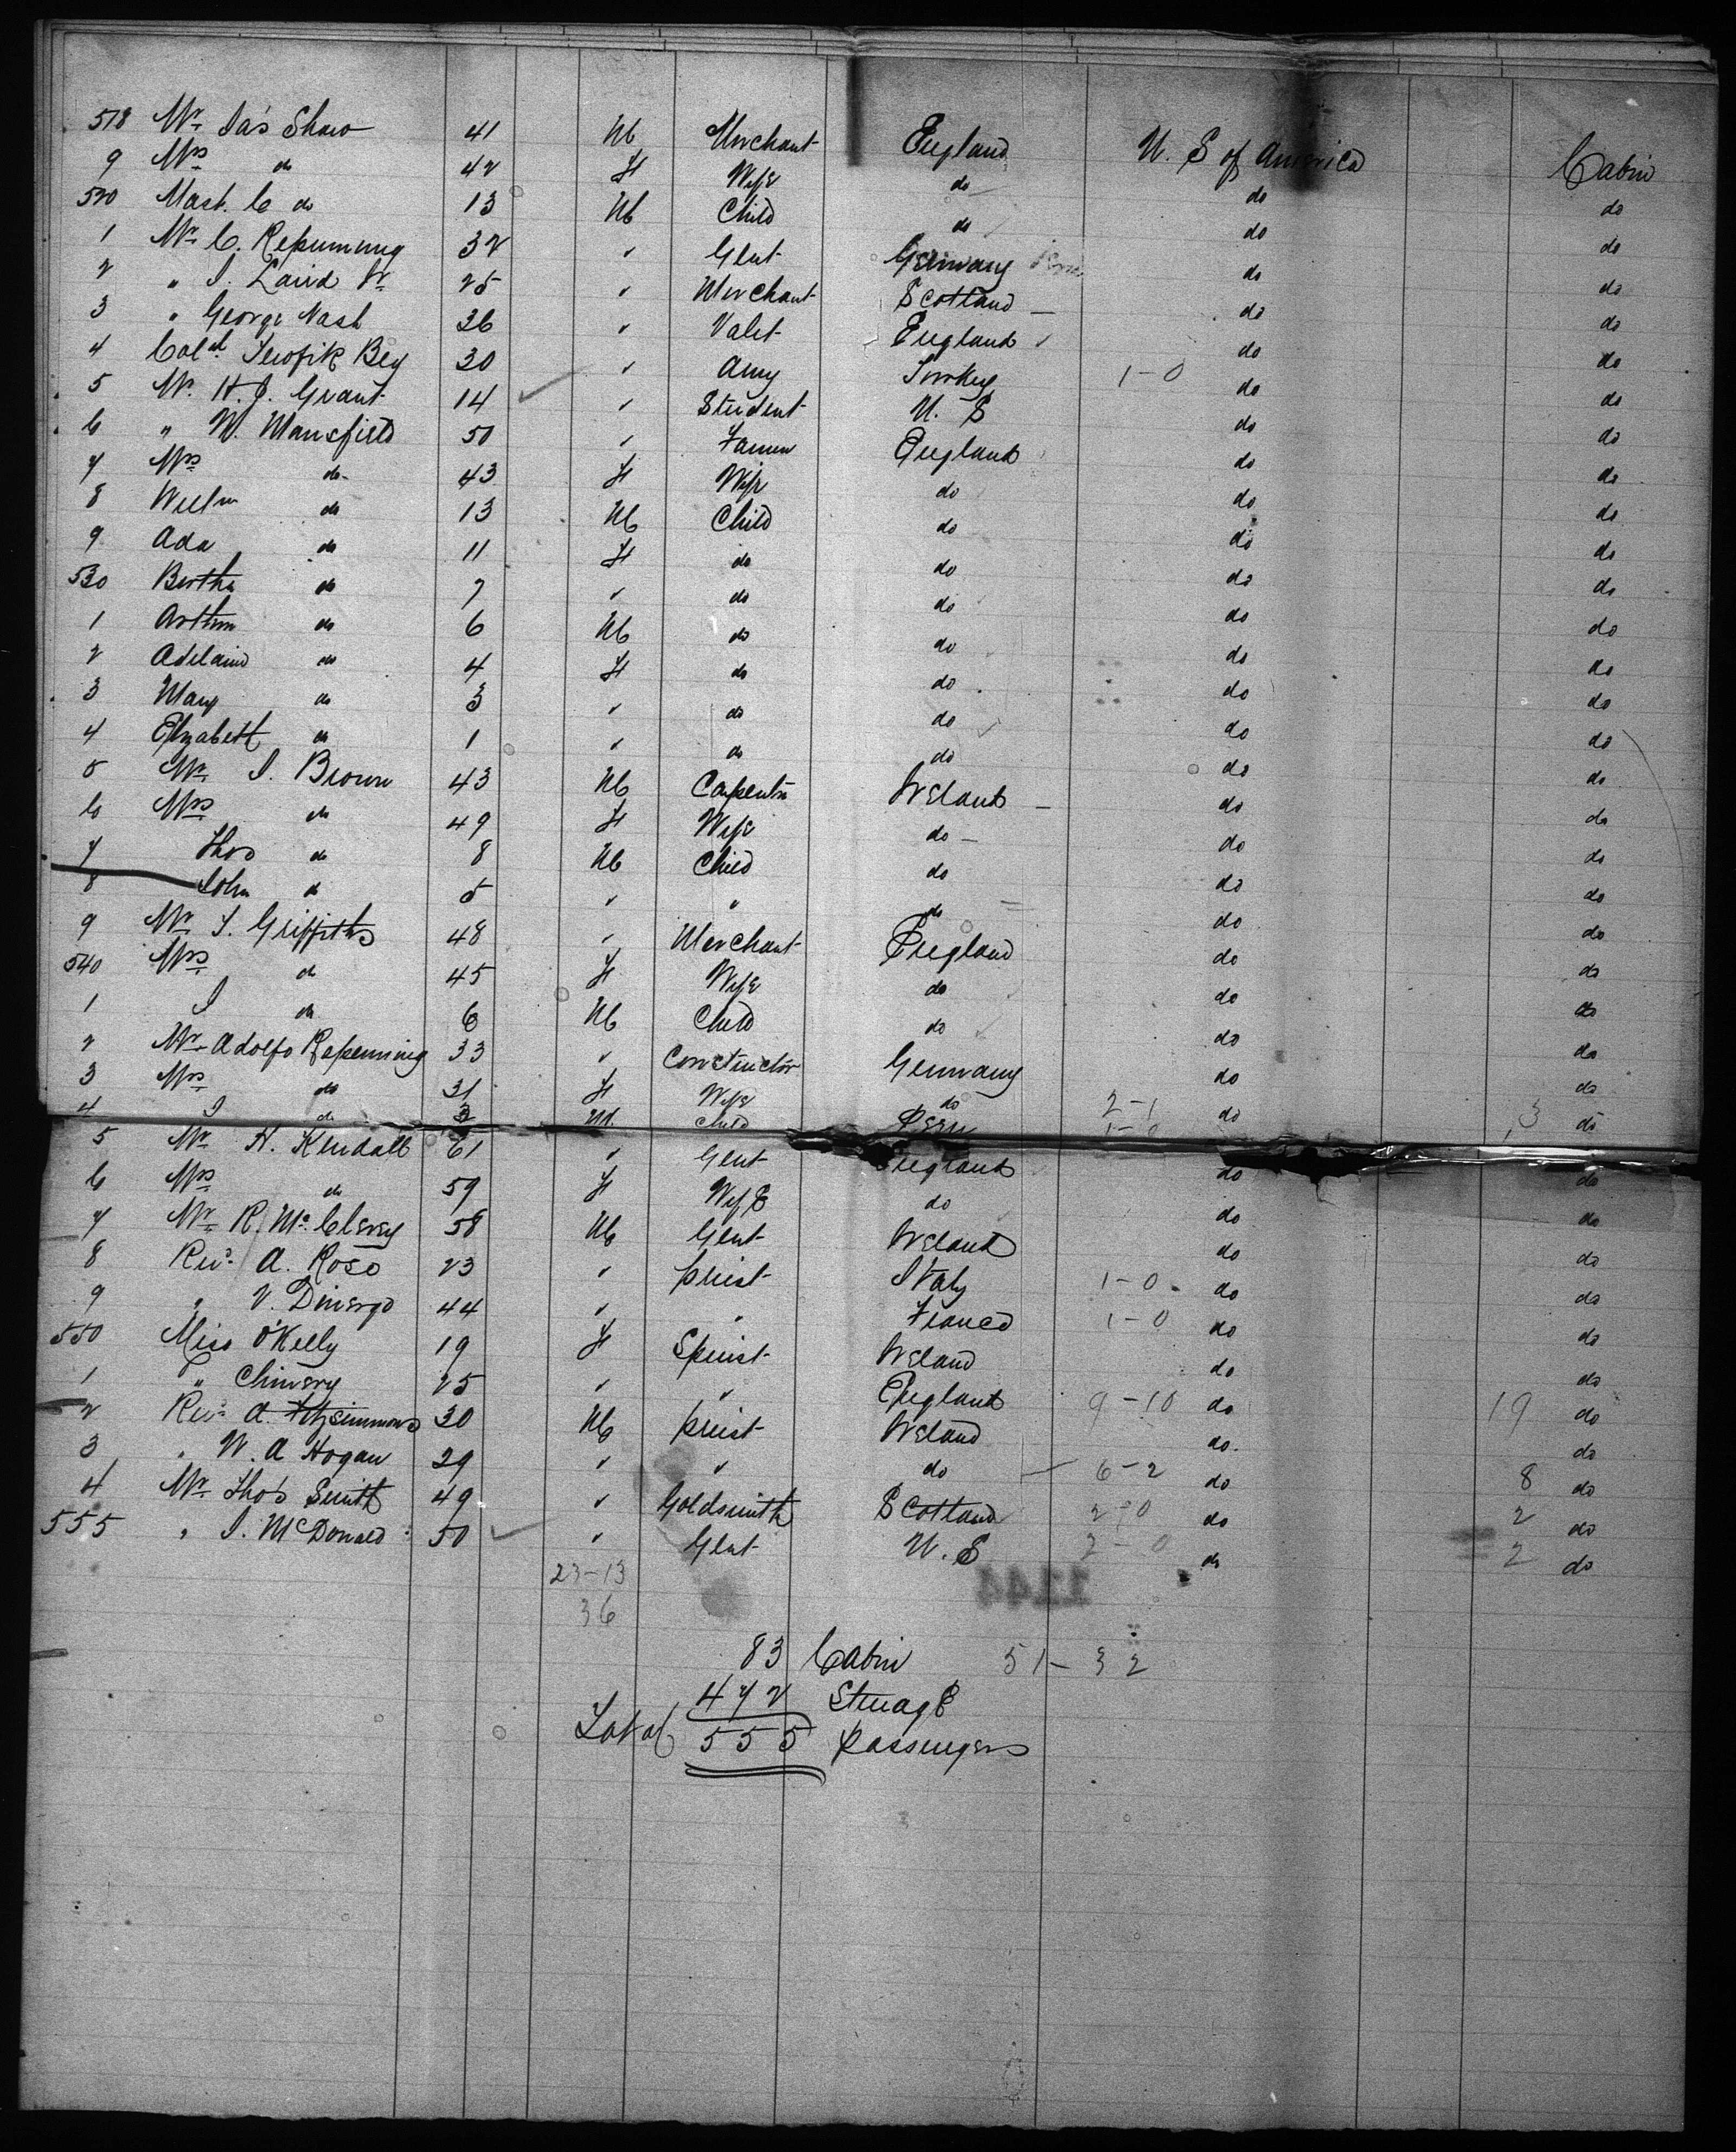 518 Mr Jas Shaw 41 M Merchant England U. S of America Cabin
9 Mrs do 42 F Wife do do do
520 Mast. C do 13 M Child do do do
1 Mr C. Repenning 32 " Gent Germany do do
2 " J. Laird Jr 25 " Merchant Scotland do do
3 " George Nash 36 " Valet England do do
4 Colnl Tewfik Bey 30 " Army Turkey 1-0 do do
5 Mr. H. J. Grant 14 " Student U. S do do
6 " W. Mansfield 50 " Farmer England do do
7 Mrs do 43 F Wife do do do
8 Willm do 13 M Child do do do
9 Ada do 11 F do do do do
530 Bertha do 7 " do do do do
1 Arthur do 6 M do do do do
2 Adelaid do 4 F do do do do
3 Mary do 3 " do do do do
4 Elizabeth do 1 " do do do do
5 Mr J. Brown 43 M Carpenter Ireland do do
6 Mrs do 49 F Wife do do do
7 Thos do 8 M Child do do do
8 John do 5 " " do do do
9 Mr T. Griffiths 48 " Merchant England do do
540 Mrs do 45 F Wife do do do
1 J do 6 M Child do do do
2 Mr Adolfo Repenning 33 " Constructor Germany do do
3 Mrs do 31 F Wife do 2-1 do do
4 J do M Child Peru do 3 do
5 Mr H. Kendall 61 " Gent England do do
6 Mrs do 59 F Wife do do do
7 Mr R. McClerey 58 M Gent Ireland do do
8 Revd A. Roso 23 " priest Italy 1-0 do do
9 " V. 44 " " France 1-0 do do
550 Miss O'Kelly 19 F Spinst Ireland do do
1 " Chinery 25 " " England 9-10 do 19 do
2 Revd A. Fitzsimmons 30 M priest Ireland do do
3 " W. A Hogan 29 " " do 6-2 do 8 do
4 Mr Thos Smith 49 " Goldsmith Scotland 2-0 do 2 do
555 " J. McDonald 50 " Gent U. S 2-0 do 2 do
23-13
36
1144
83 Cabin 51-32
472 Steerage
Total 555 passengers